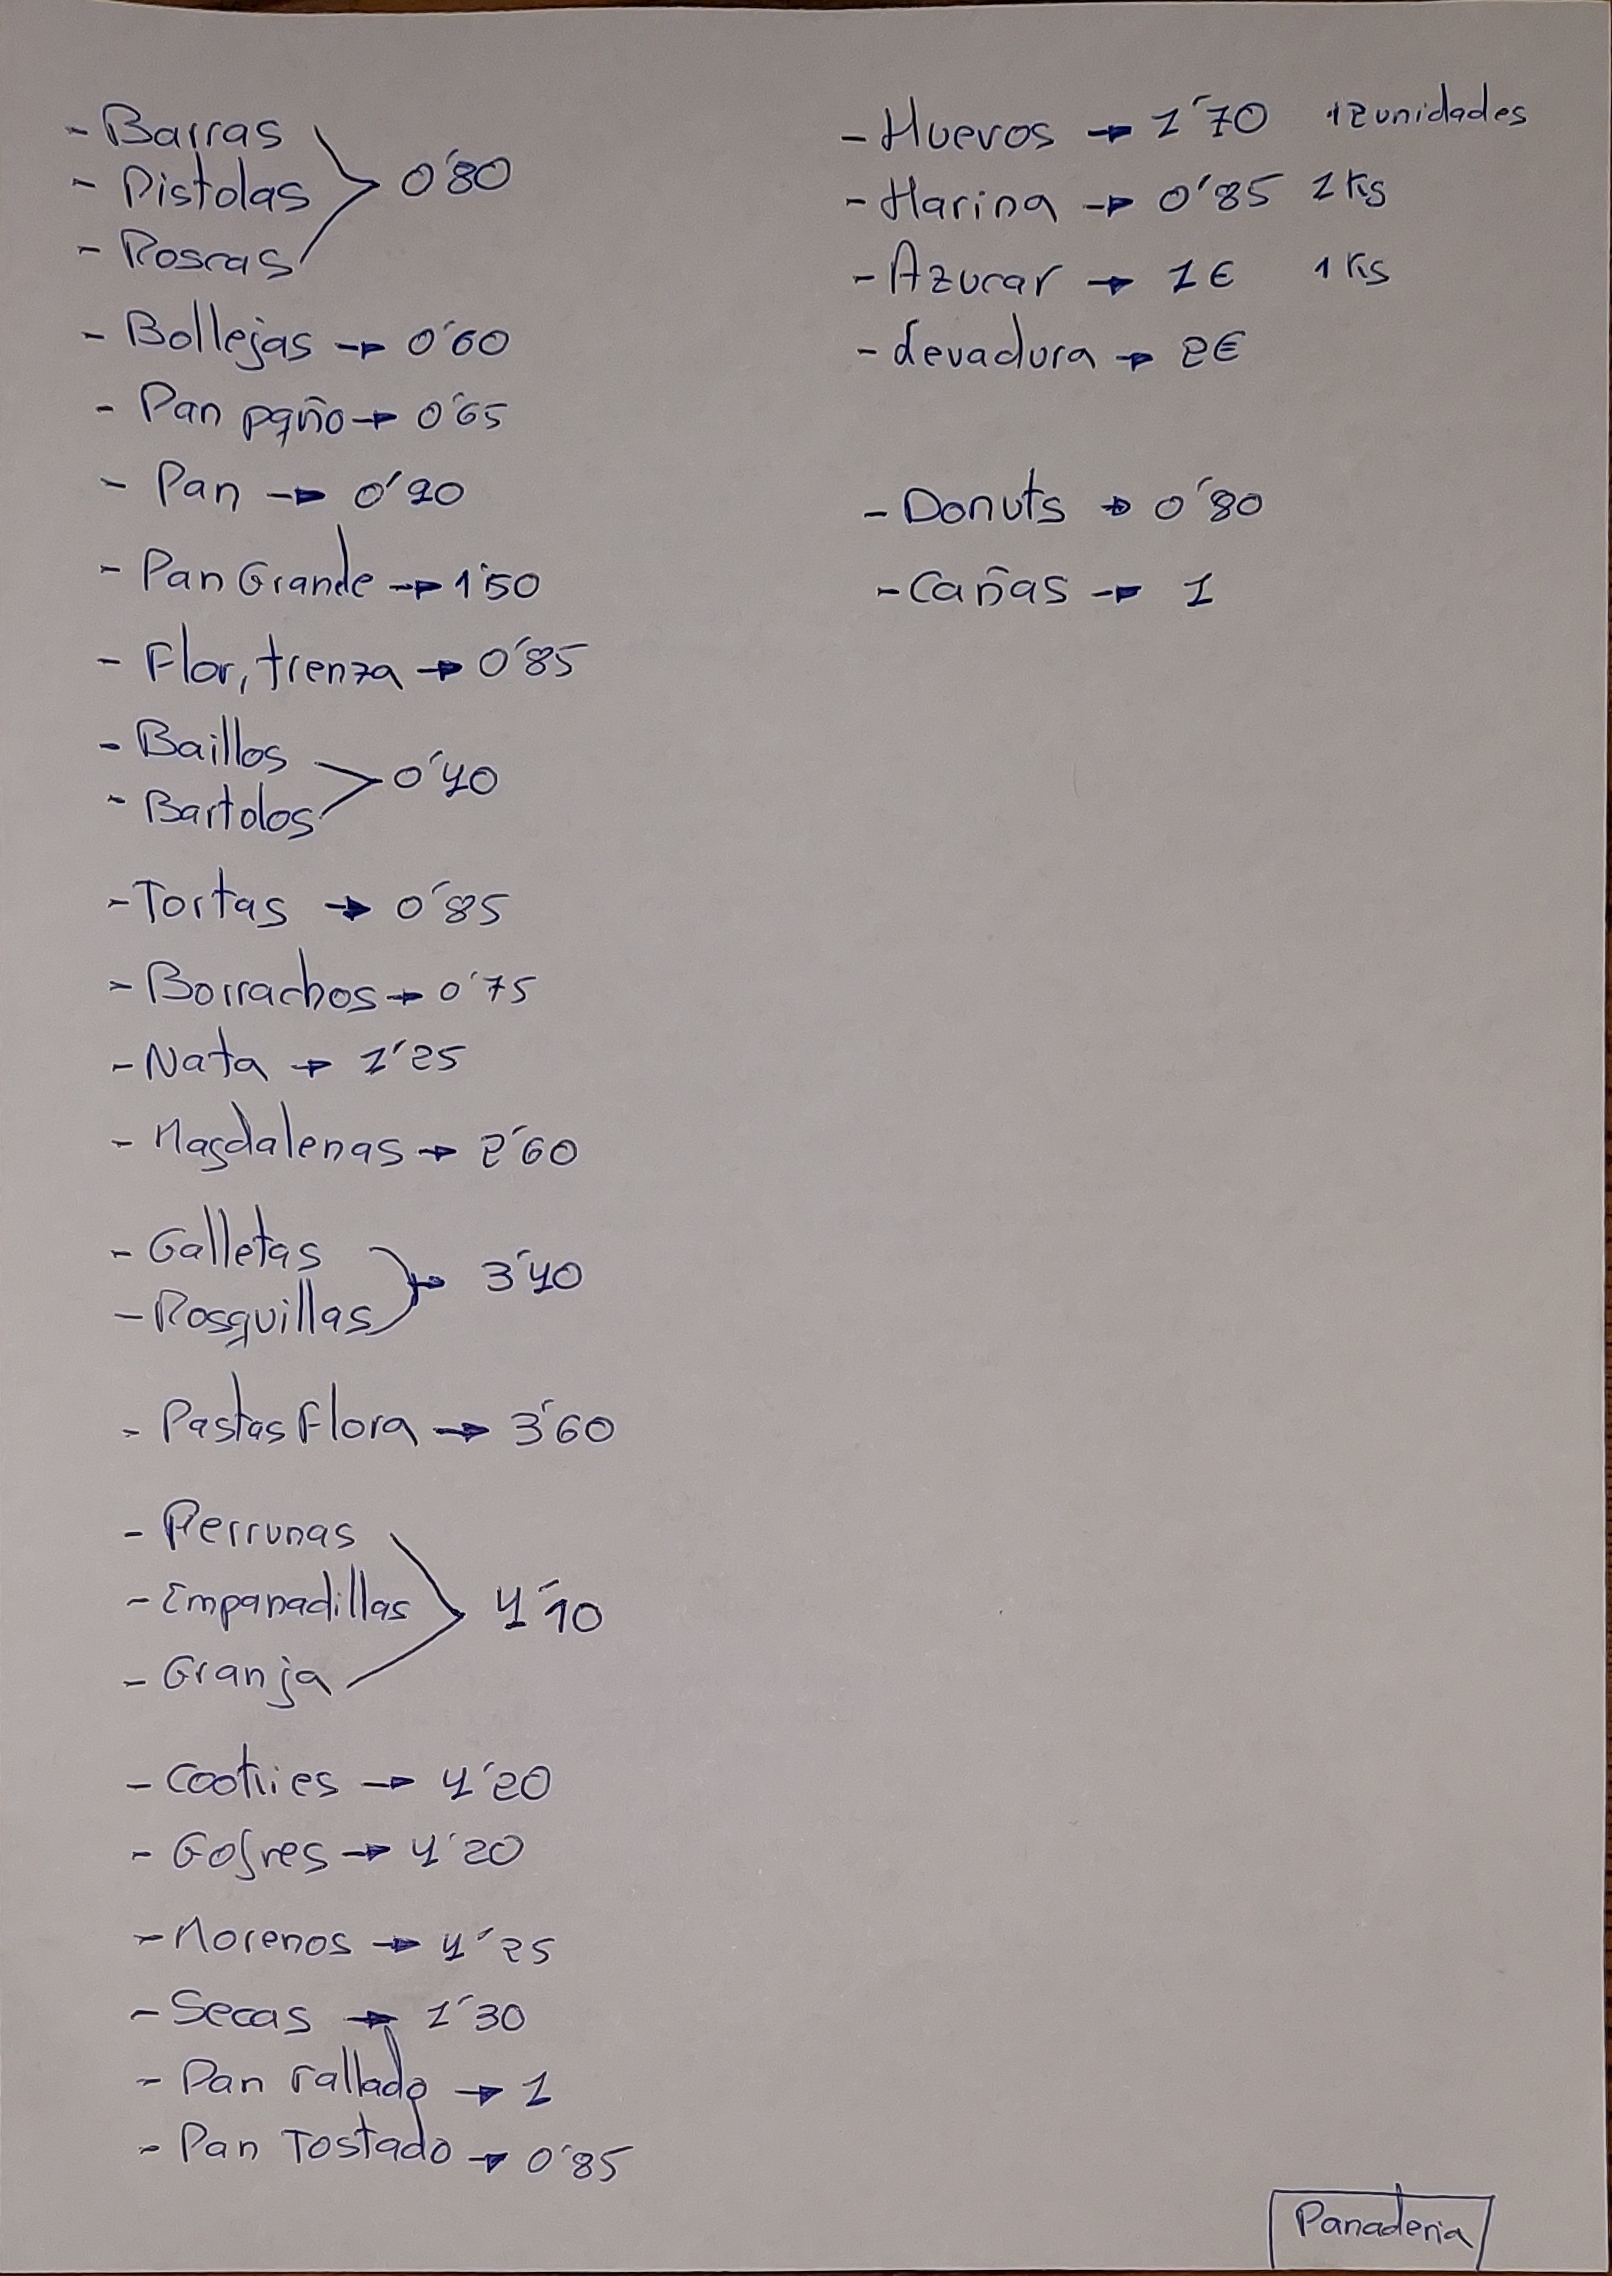 - Barras
- Pistolas 0'80
- Roscas
- Bollejas → 0'60
- Pan pqño → 0'65
- Pan → 0'90
- Pan Grande → 1'50
- Flor, trenza → 0'85
- Baillos
- Bartolos 0'40
- Tortas → 0'85
- Borrachos → 0'75
- Nata → 1'25
- Magdalenas → 2'60
- Galletas
- Rosquillas → 3'40
- Pastas Flora → 3'60
- Perrunas
- Empanadillas 4'10
- Granja
- Cookies → 4'20
- Gofres → 4'20
- Morenos → 4'25
- Secas → 1'30
- Pan rallado → 1
- Pan Tostado → 0'85
- Huevos → 1'70 12 unidades
- Harina → 0'85 1 Kg
- Azucar → 1€ 1 Kg
- Levadura → 2€
- Donuts → 0'80
- Cañas → 1
Panaderia